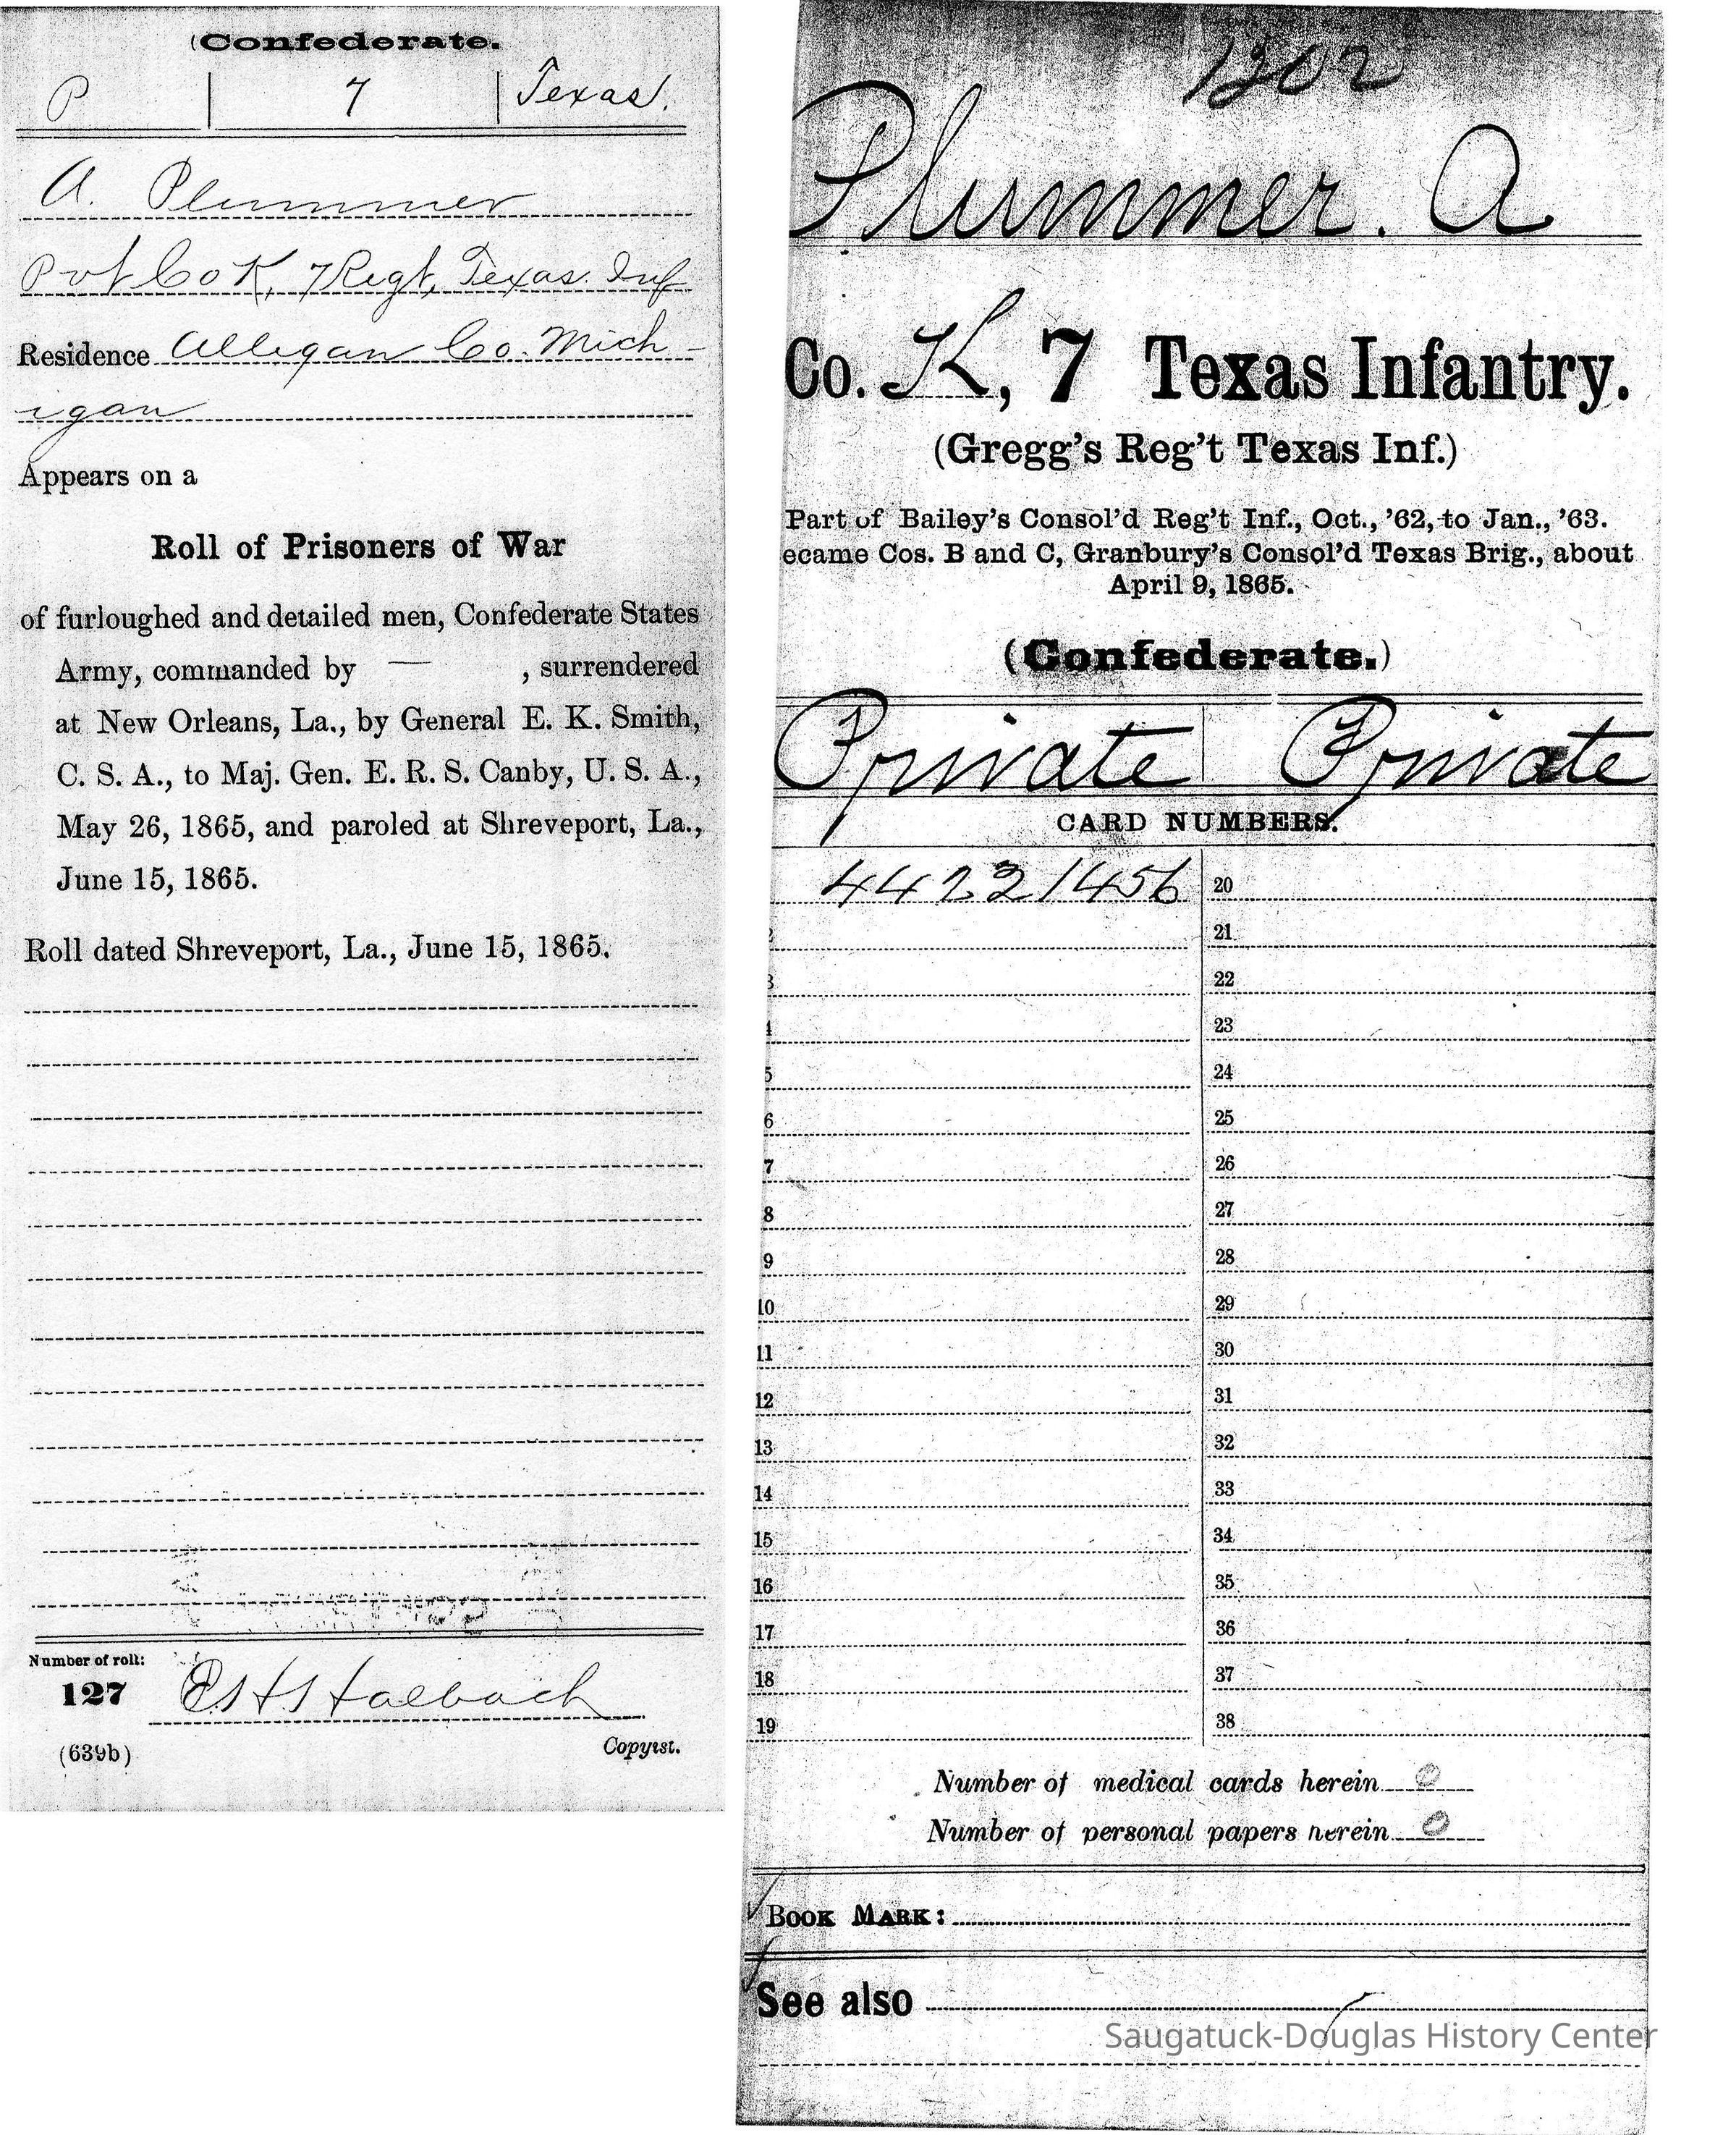 (Confederate.
P | 7 | Texas.
A. Plummer
Pvt Co K, 7 Regt, Texas. Inf
Residence Allegan Co. Mich-
igan
Appears on a
Roll of Prisoners of War
of furloughed and detailed men, Confederate States
Army, commanded by — , surrendered
at New Orleans, La., by General E. K. Smith,
C. S. A., to Maj. Gen. E. R. S. Canby, U. S. A.,
May 26, 1865, and paroled at Shreveport, La.,
June 15, 1865.
Roll dated Shreveport, La., June 15, 1865.
Number of roll:
127
(639b)
Copyist.
1302
Plummer. A
Co. K, 7 Texas Infantry.
(Gregg's Reg't Texas Inf.)
Part of Bailey's Consol'd Reg't Inf., Oct., '62, to Jan., '63.
ecame Cos. B and C, Granbury's Consol'd Texas Brig., about
April 9, 1865.
(Confederate.)
Private | Private
CARD NUMBERS.
44221456 20
2 21
3 22
4 23
5 24
6 25
7 26
8 27
9 28
10 29
11 30
12 31
13 32
14 33
15 34
16 35
17 36
18 37
19 38
Number of medical cards herein 0
Number of personal papers herein 0
BOOK MARK:
See also
Saugatuck-Douglas History Center